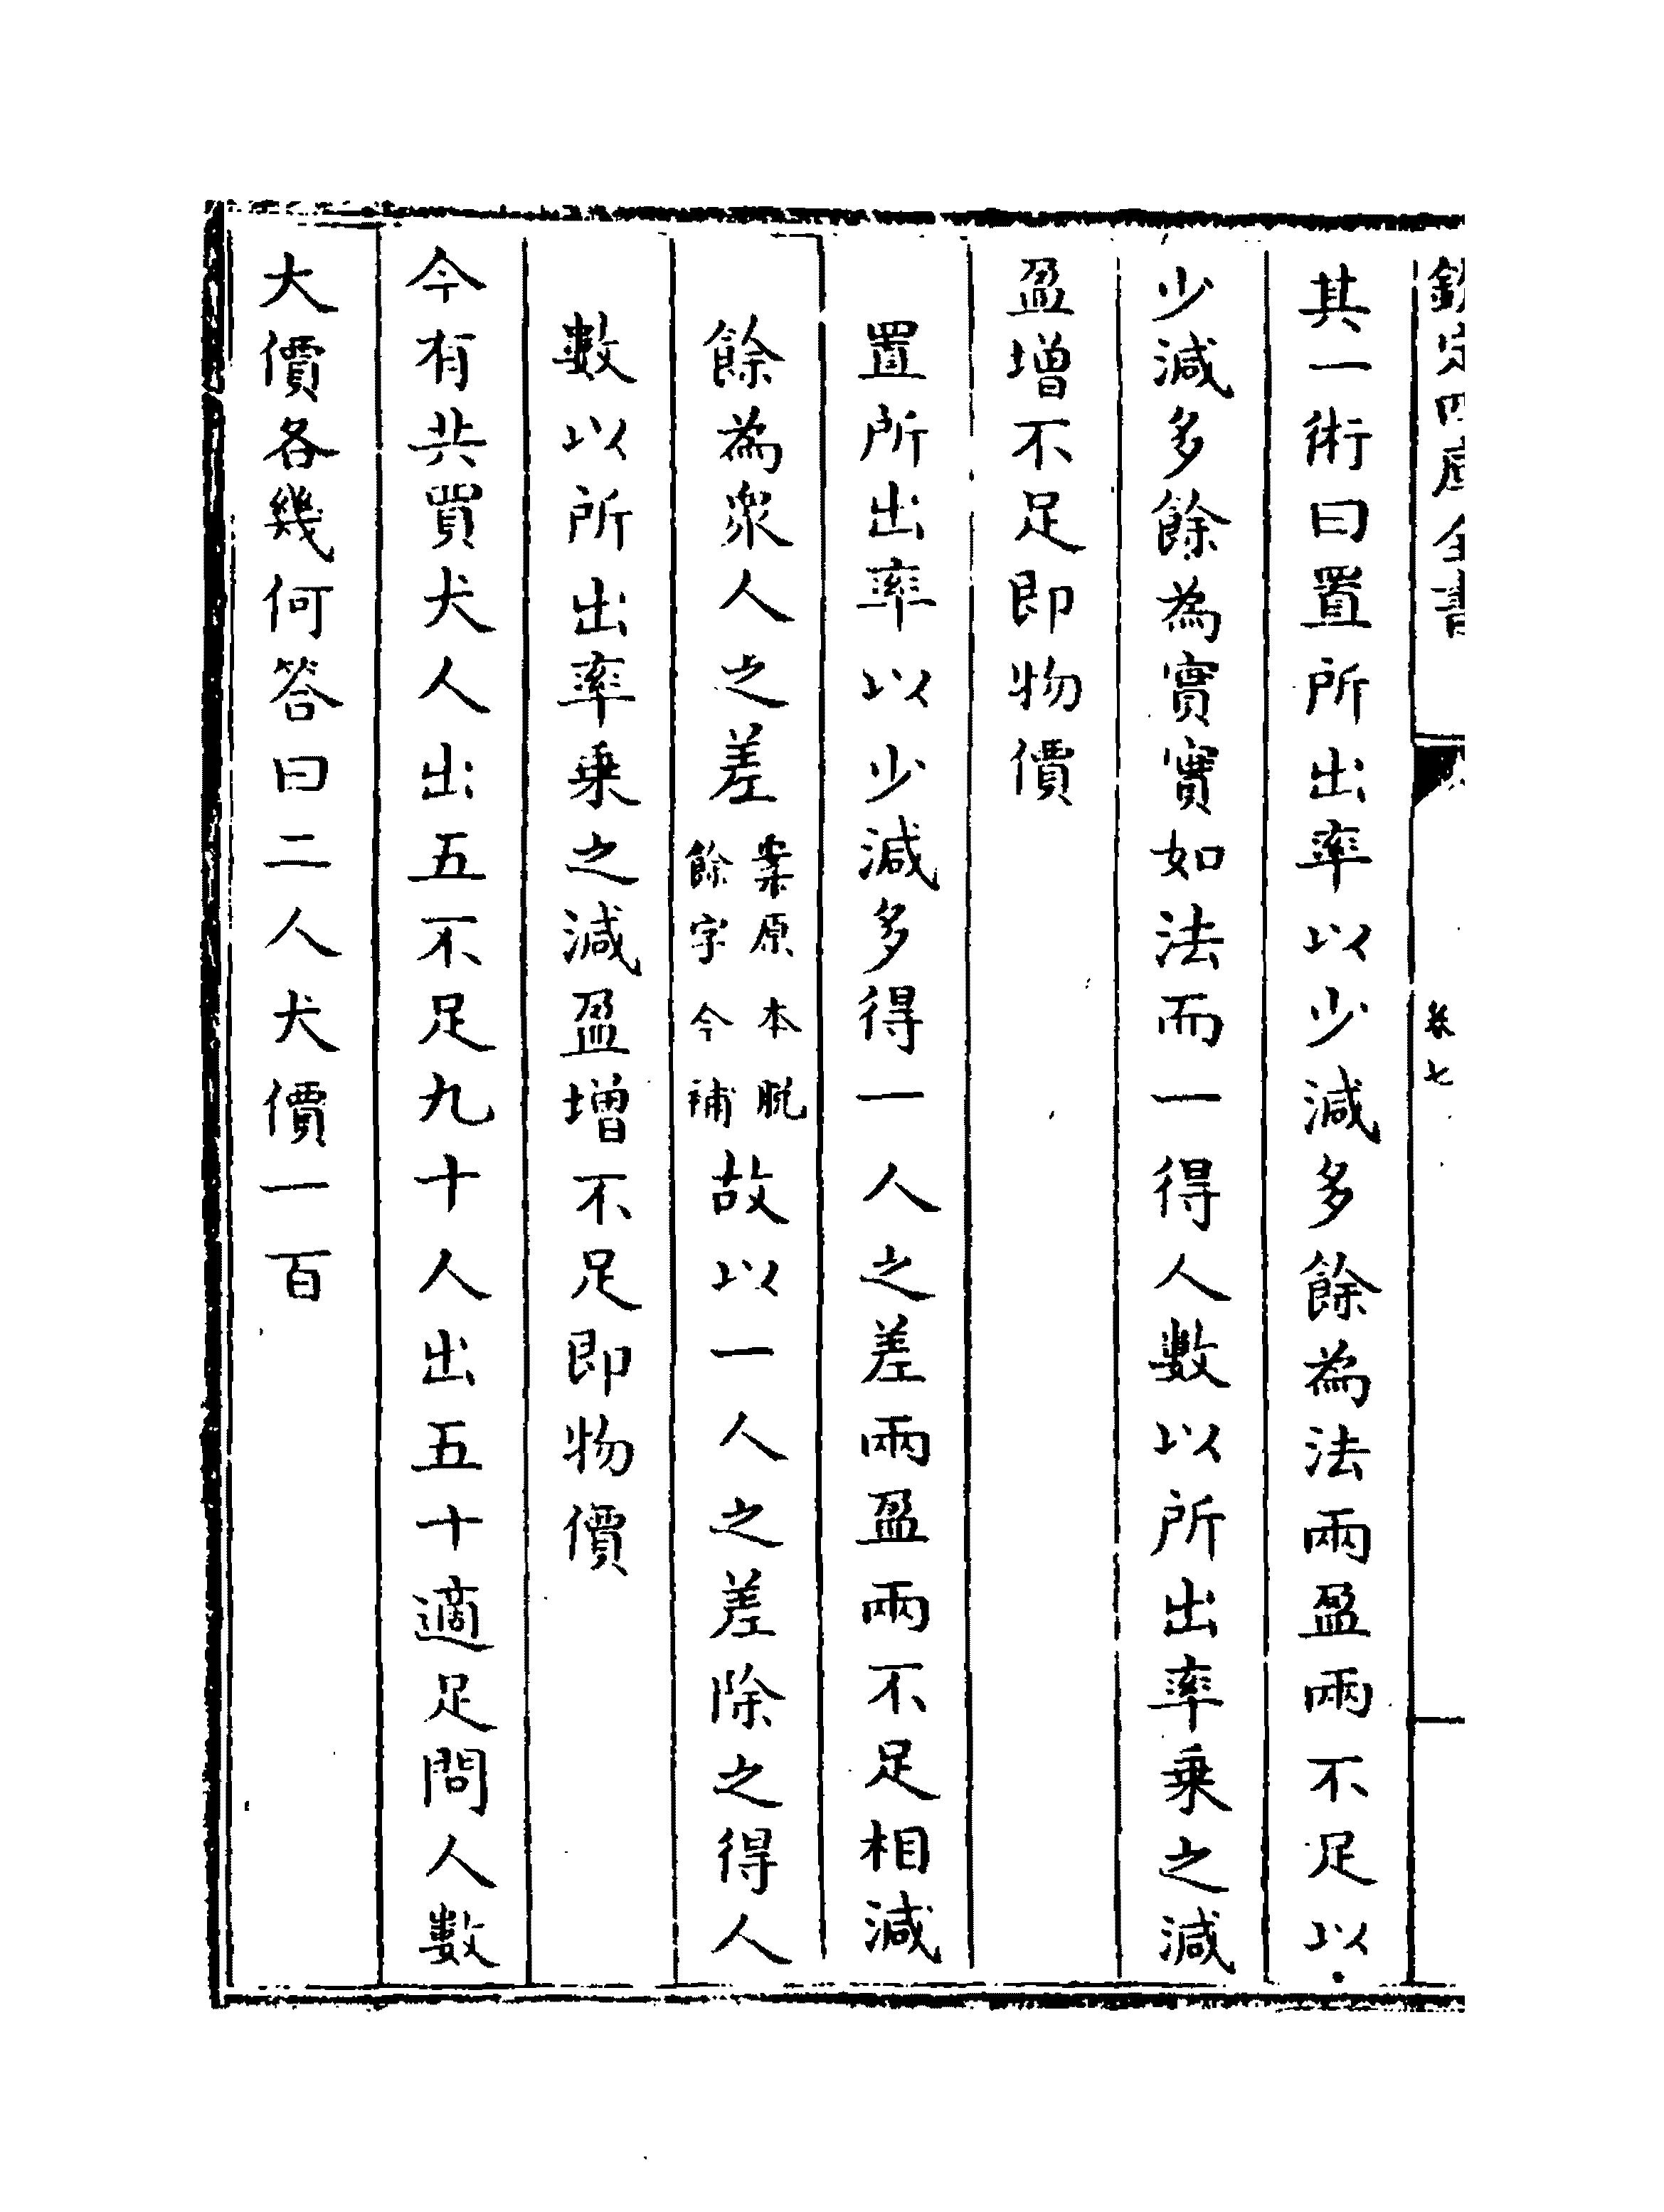 欽定四庫全書 卷七
其一術曰置所出率以少減多餘為法兩盈兩不足以
少減多餘為實實如法而一得人數以所出率乗之減
盈增不足即物價
置所出率以少減多得一人之差兩盈兩不足相減
餘為衆人之差案原本脫餘字今補故以一人之差除之得人
數以所出率乗之減盈增不足即物價
今有共買犬人出五不足九十人出五十適足問人數
大價各幾何答曰二人犬價一百